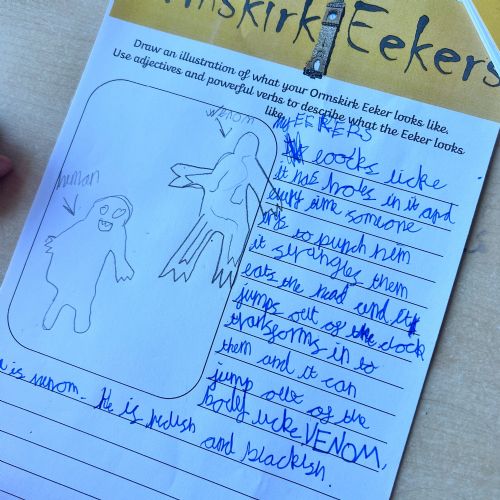 Ormskirk Eekers
Draw an illustration of what your Ormskirk Eeker looks like.
Use adjectives and powerful verbs to describe what the Eeker looks
like.
venom
human
my EEKERS
looks licke
it has hols in it and
evry time someone
trys to punch him
it strangles them
eats the head and it
jumps out of the clock
transforms in to
them and it can
jump out of the
body licke VENOM.
is venom. He is redish and blackish.